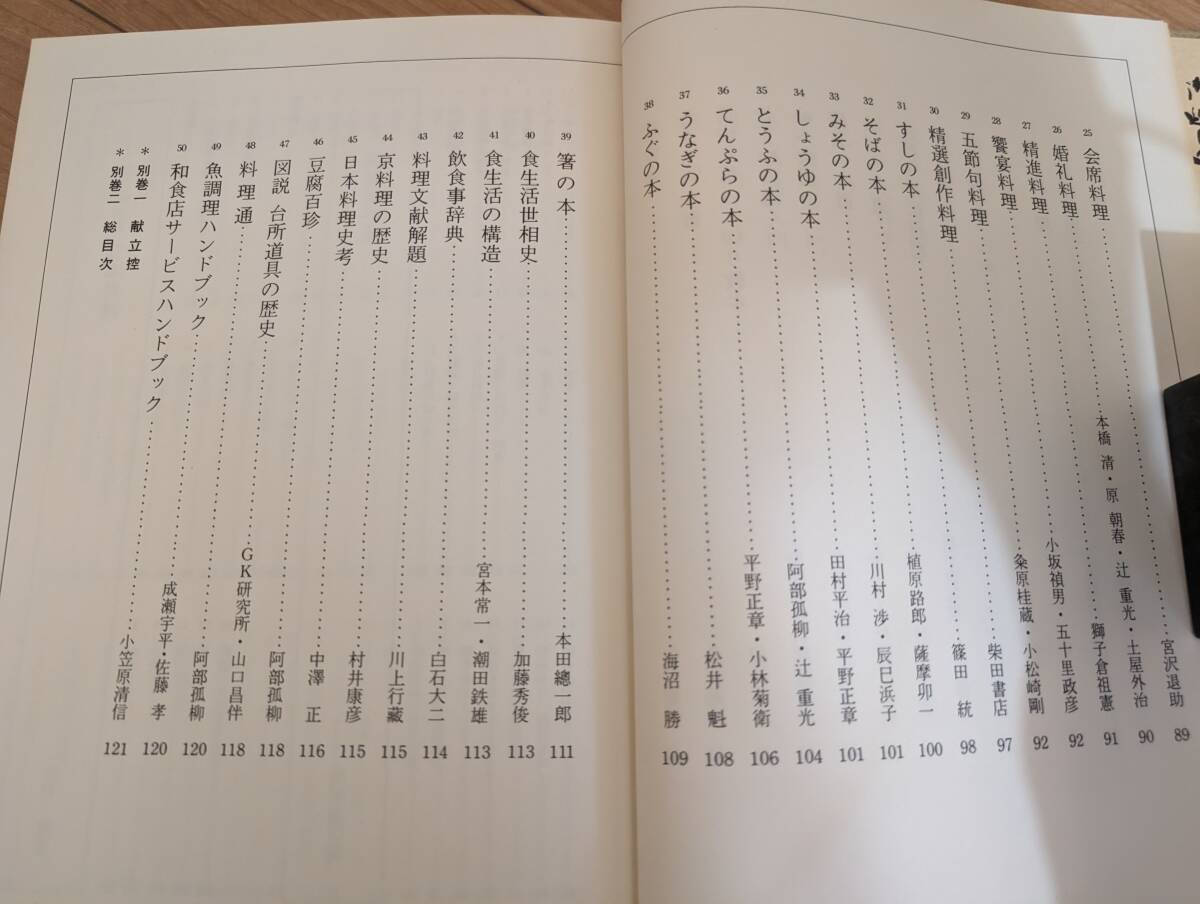 25 会席料理……宮沢退助 89
26 婚礼料理……本橋 清・原 朝春・辻 重光・土屋外治 90
27 精進料理……獅子倉祖憲 91
28 饗宴料理……小坂禎男・五十里政彦 92
29 五節句料理……粂原桂蔵・小松崎剛 92
30 精選創作料理……柴田書店 97
31 すしの本……篠田 統 98
32 そばの本……植原路郎・薩摩卯一 100
33 みその本……川村 渉・辰巳浜子 101
34 しょうゆの本……田村平治・平野正章 101
35 とうふの本……阿部孤柳・辻 重光 104
36 てんぷらの本……平野正章・小林菊衛 106
37 うなぎの本……松井 魁 108
38 ふぐの本……海沼 勝 109
39 箸の本……本田總一郎 111
40 食生活世相史……加藤秀俊 113
41 食生活の構造……宮本常一・潮田鉄雄 113
42 飲食事辞典……白石大二 114
43 料理文献解題……川上行藏 115
44 京料理の歴史……村井康彦 115
45 日本料理史考……中澤 正 116
46 豆腐百珍……阿部孤柳 118
47 図説 台所道具の歴史……GK研究所・山口昌伴 118
48 料理通……阿部孤柳 120
49 魚調理ハンドブック……成瀬宇平・佐藤 孝 120
50 和食店サービスハンドブック……小笠原清信 121
＊ 別巻一 献立控
＊ 別巻二 総目次